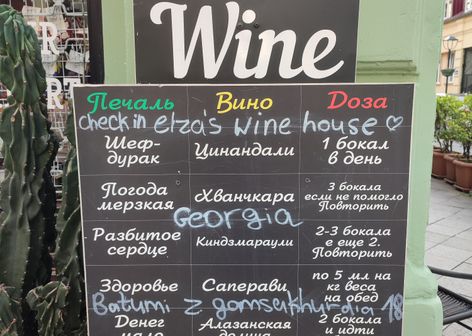 Wine
Печаль Вино Доза
check in elza's wine house ♡
Шеф-
дурак
Цинандали
1 бокал
в день
Погода
мерзкая
Хванчкара
3 бокала
если не помогло
Повторить
Georgia
Разбитое
сердце
Киндзмараули
2-3 бокала
а еще 2.
Повторить
Здоровье
Саперави
по 5 мл на
кг веса
на обед
Batumi z gamsakhurdia 18
Денег
Алазанская
2 бокала
и идти